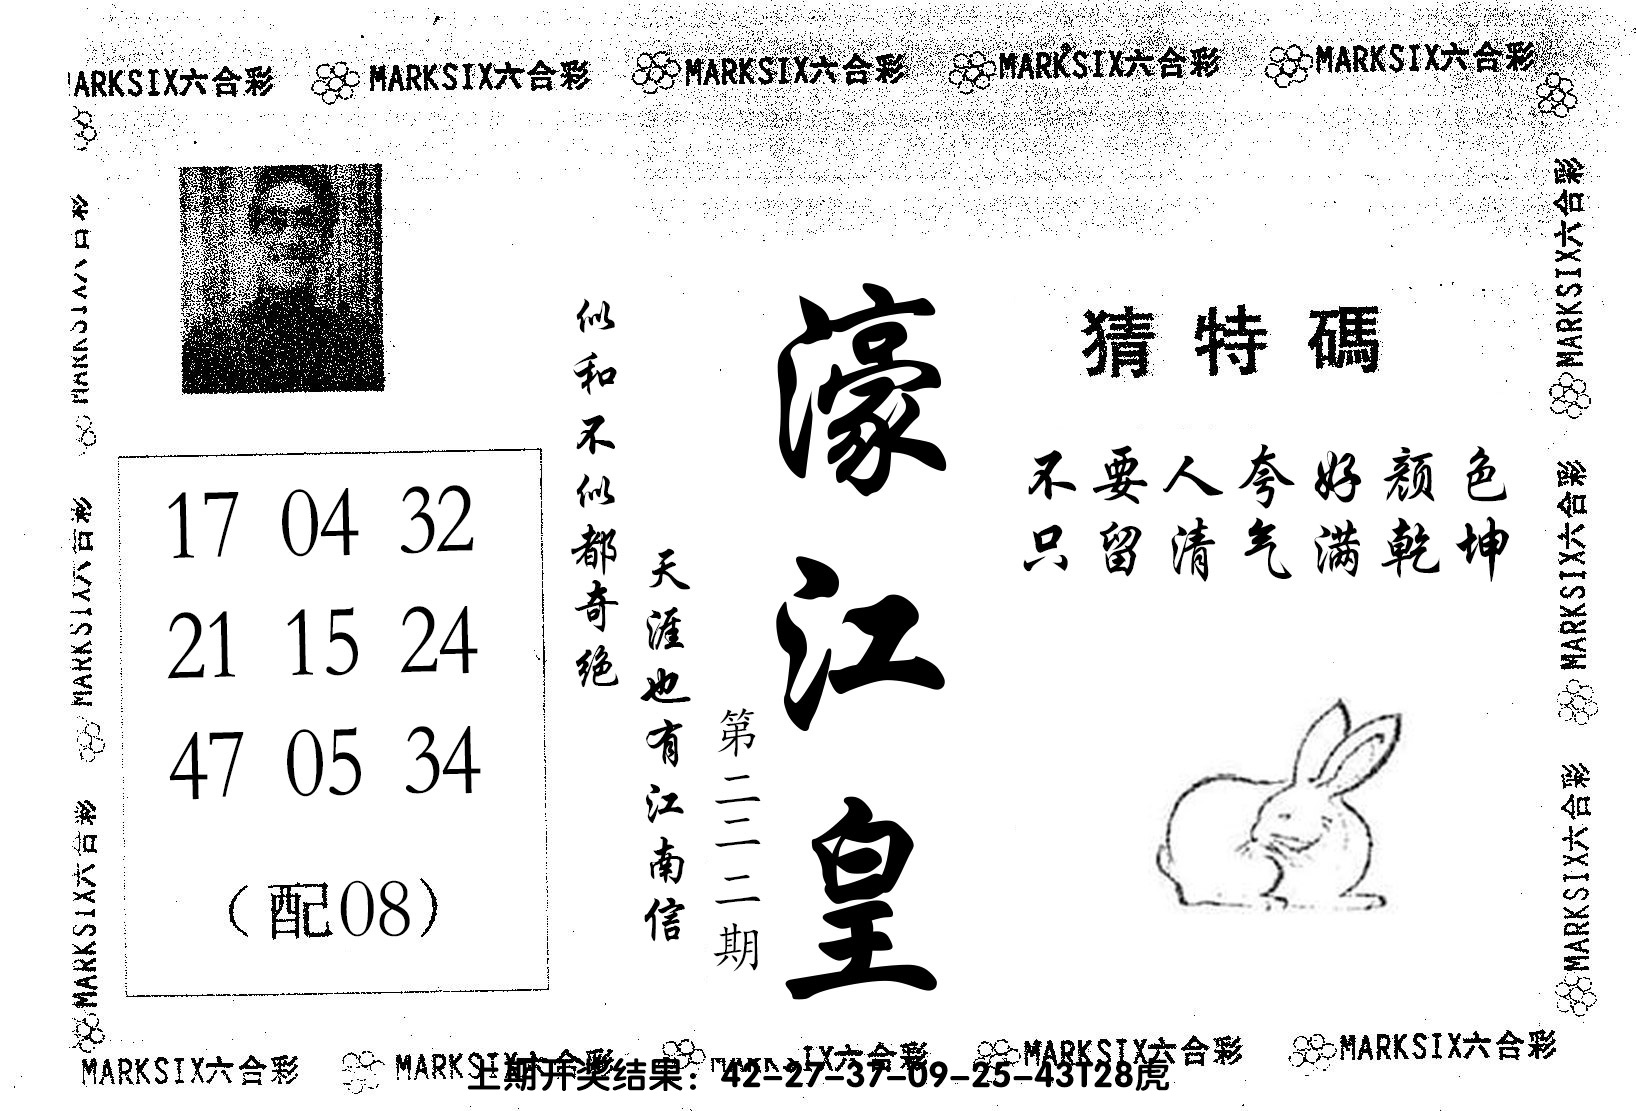 MARKSIX六合彩 MARKSIX六合彩 MARKSIX六合彩 MARKSIX六合彩 MARKSIX六合彩
猜特碼
不要人夸好颜色
只留清气满乾坤
濠江皇
第二二二期
天涯也有江南信
似和不似都奇绝
17 04 32
21 15 24
47 05 34
(配08)
MARKSIX六合彩
MARKSIX六合彩
MARKSIX六合彩
MARKSIX六合彩
MARKSIX六合彩
MARKSIX六合彩
MARKSIX六合彩 MARKSIX六合彩 MARKSIX六合彩 MARKSIX六合彩 MARKSIX六合彩
上期开奖结果：42-27-37-09-25-43T28虎